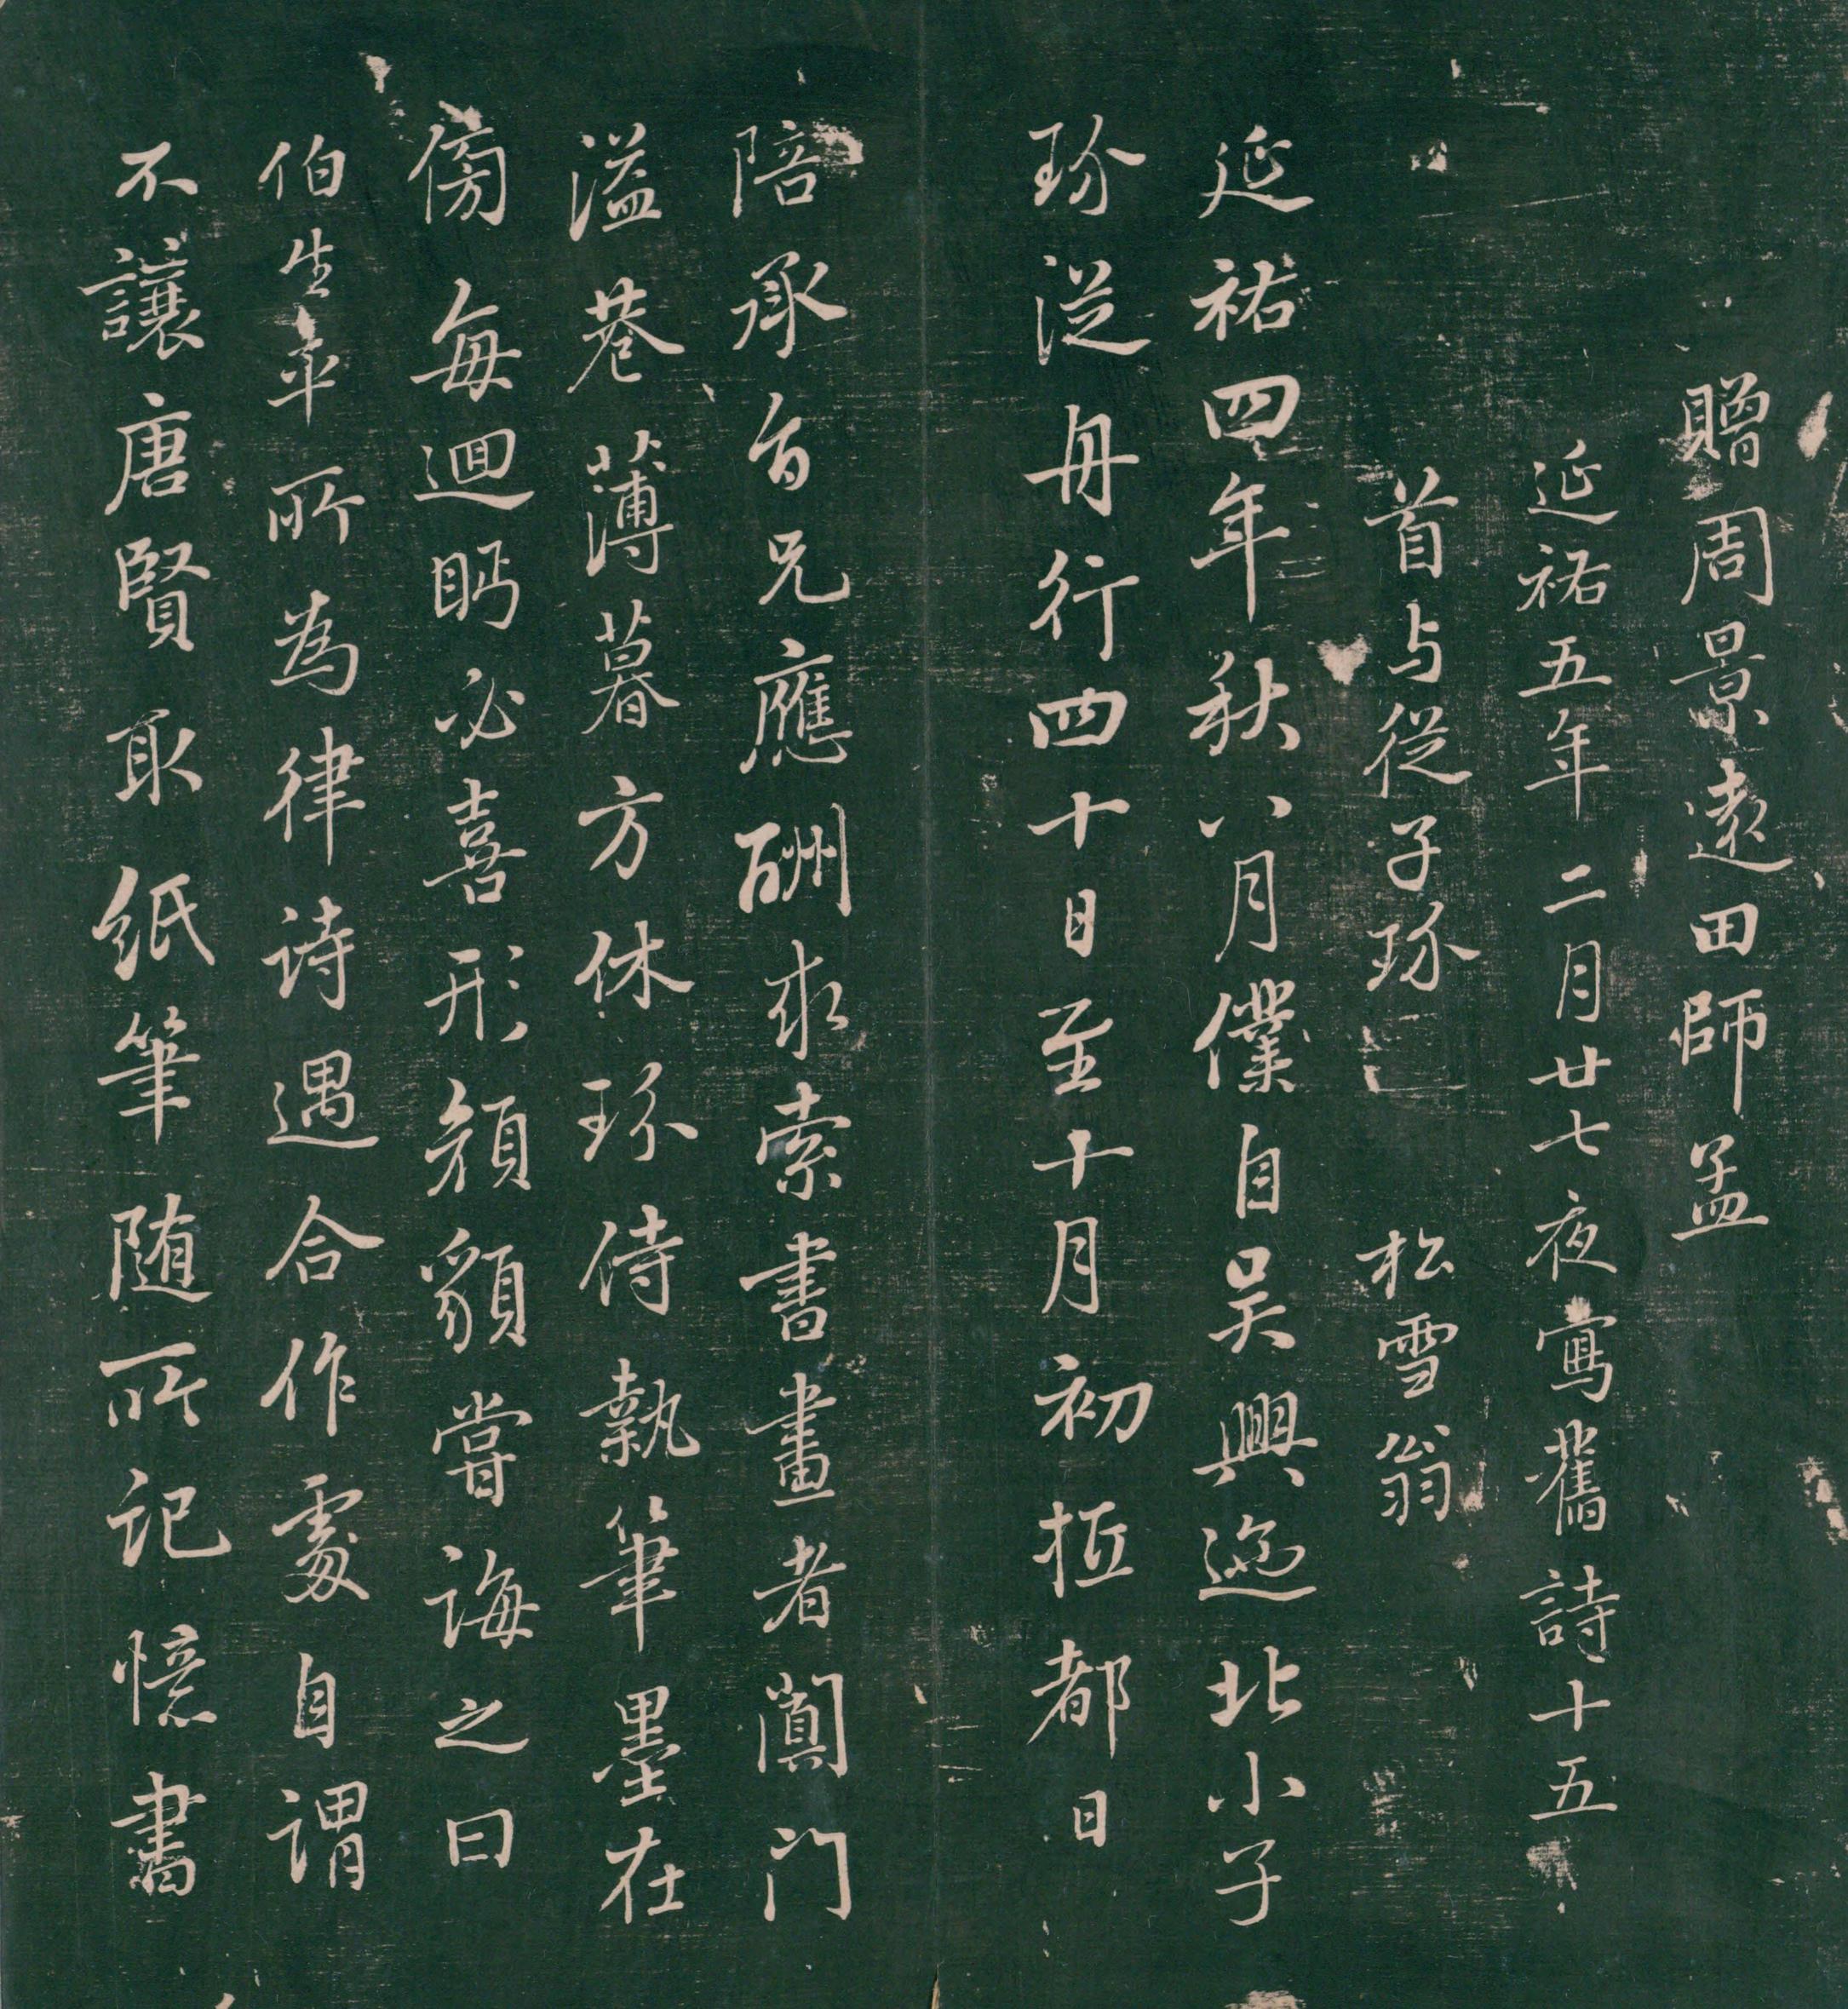 贈周景遠田師孟
延祐五年二月廿七夜寫舊詩十五
首与從子珎
松雪翁
延祐四年秋八月僕自吴興迯北小子
珎從舟行四十日至十月初抵都日
陪承旨兄應酬求索書畫者闐门
溢巷薄暮方休珎侍執筆墨在
傍每迴眄必喜形顔䫉嘗誨之曰
伯生平所為律诗遇合作處自謂
不讓唐賢取紙筆随所记憶書